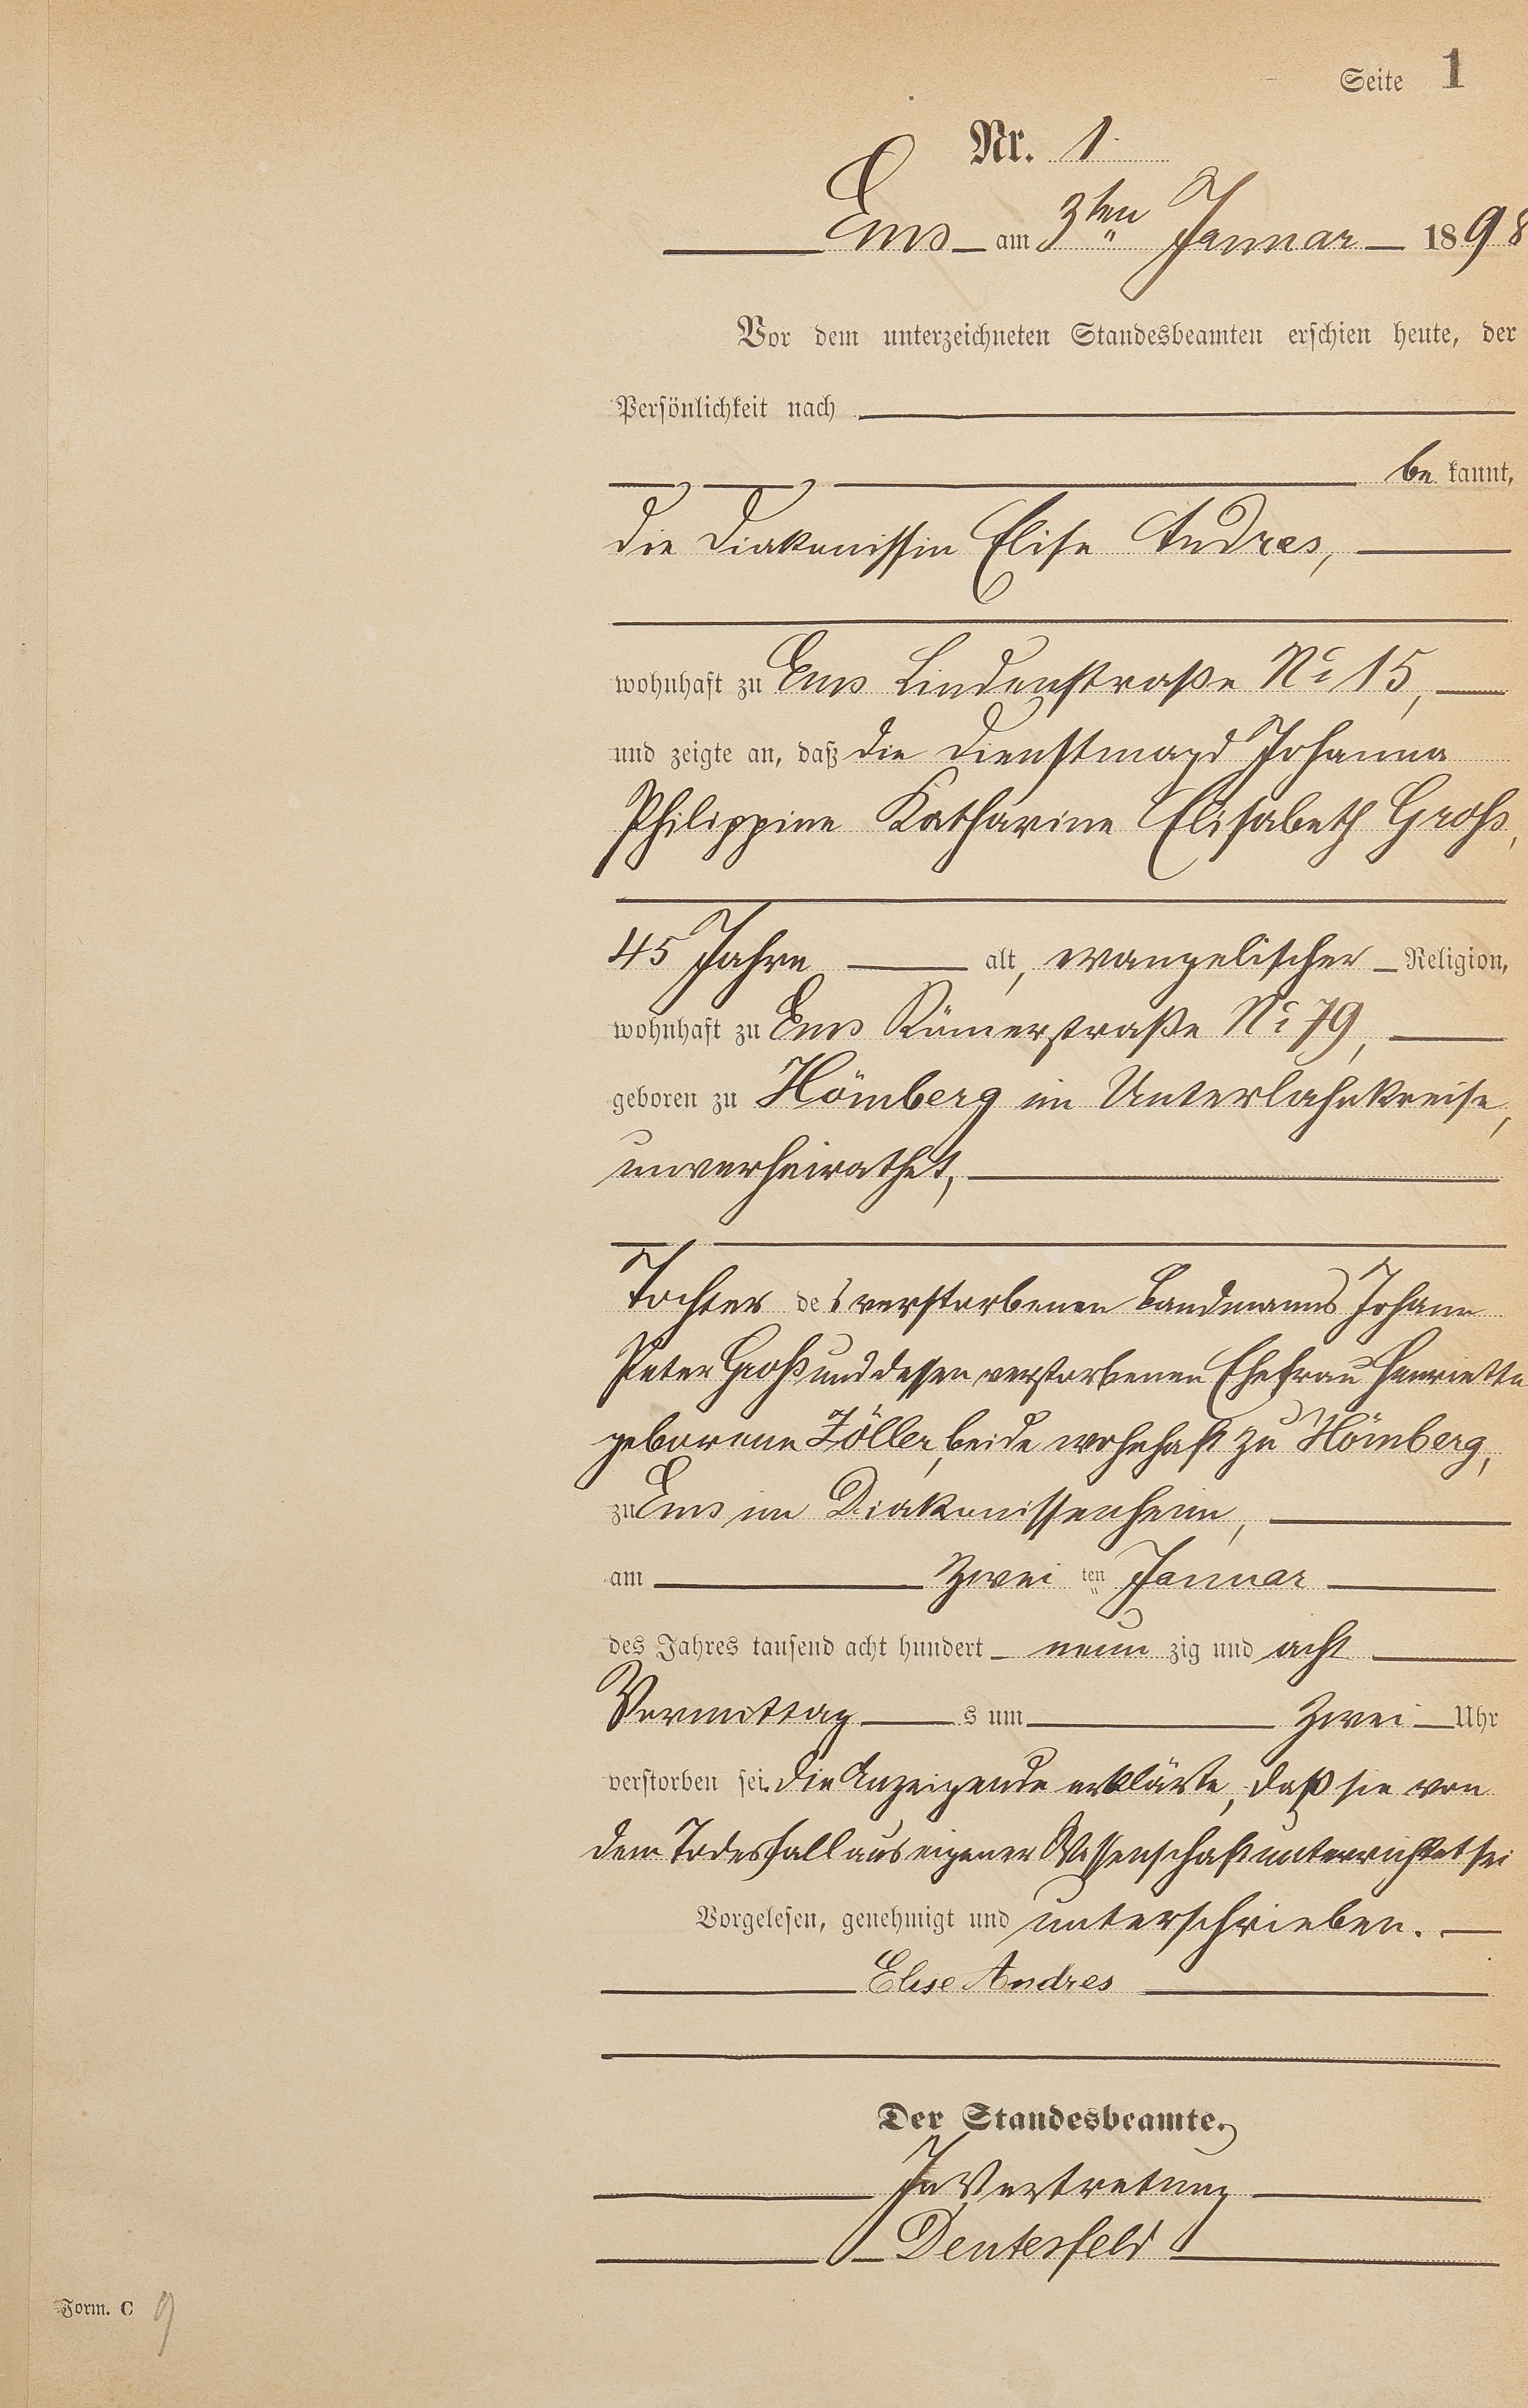 Seite 1
Nr. 1
Ems am 3ten Januar 1898
Vor dem unterzeichneten Standesbeamten erschien heute, der
Persönlichkeit nach
bekannt,
die Diakonissin Elise Andres,
wohnhaft zu Ems Lindenstraße No 15,
und zeigte an, daß die Dienstmagd Johanna
Philippine Katharine Elisabeth Groß,
45 Jahre alt, evangelischer Religion,
wohnhaft zu Ems Römerstraße No 79,
geboren zu Hömberg im Unterlahnkreise,
unverheirathet,
Tochter des verstorbenen Landmanns Johann
Peter Groß und dessen verstorbenen Ehefrau Henriette
geborene Zöller, beide wohnhaft zu Hömberg,
zu Ems im Diakonissenheim,
am zweiten Januar
des Jahres tausend acht hundert neunzig und acht
Vormittags um zwei Uhr
verstorben sei. Die Anzeigende erklärte, daß sie von
dem Todesfall aus eigener Wissenschaft unterrichtet sei
Vorgelesen, genehmigt und unterschrieben.
Elise Andres
Der Standesbeamte.
In Vertretung
Form. C 9